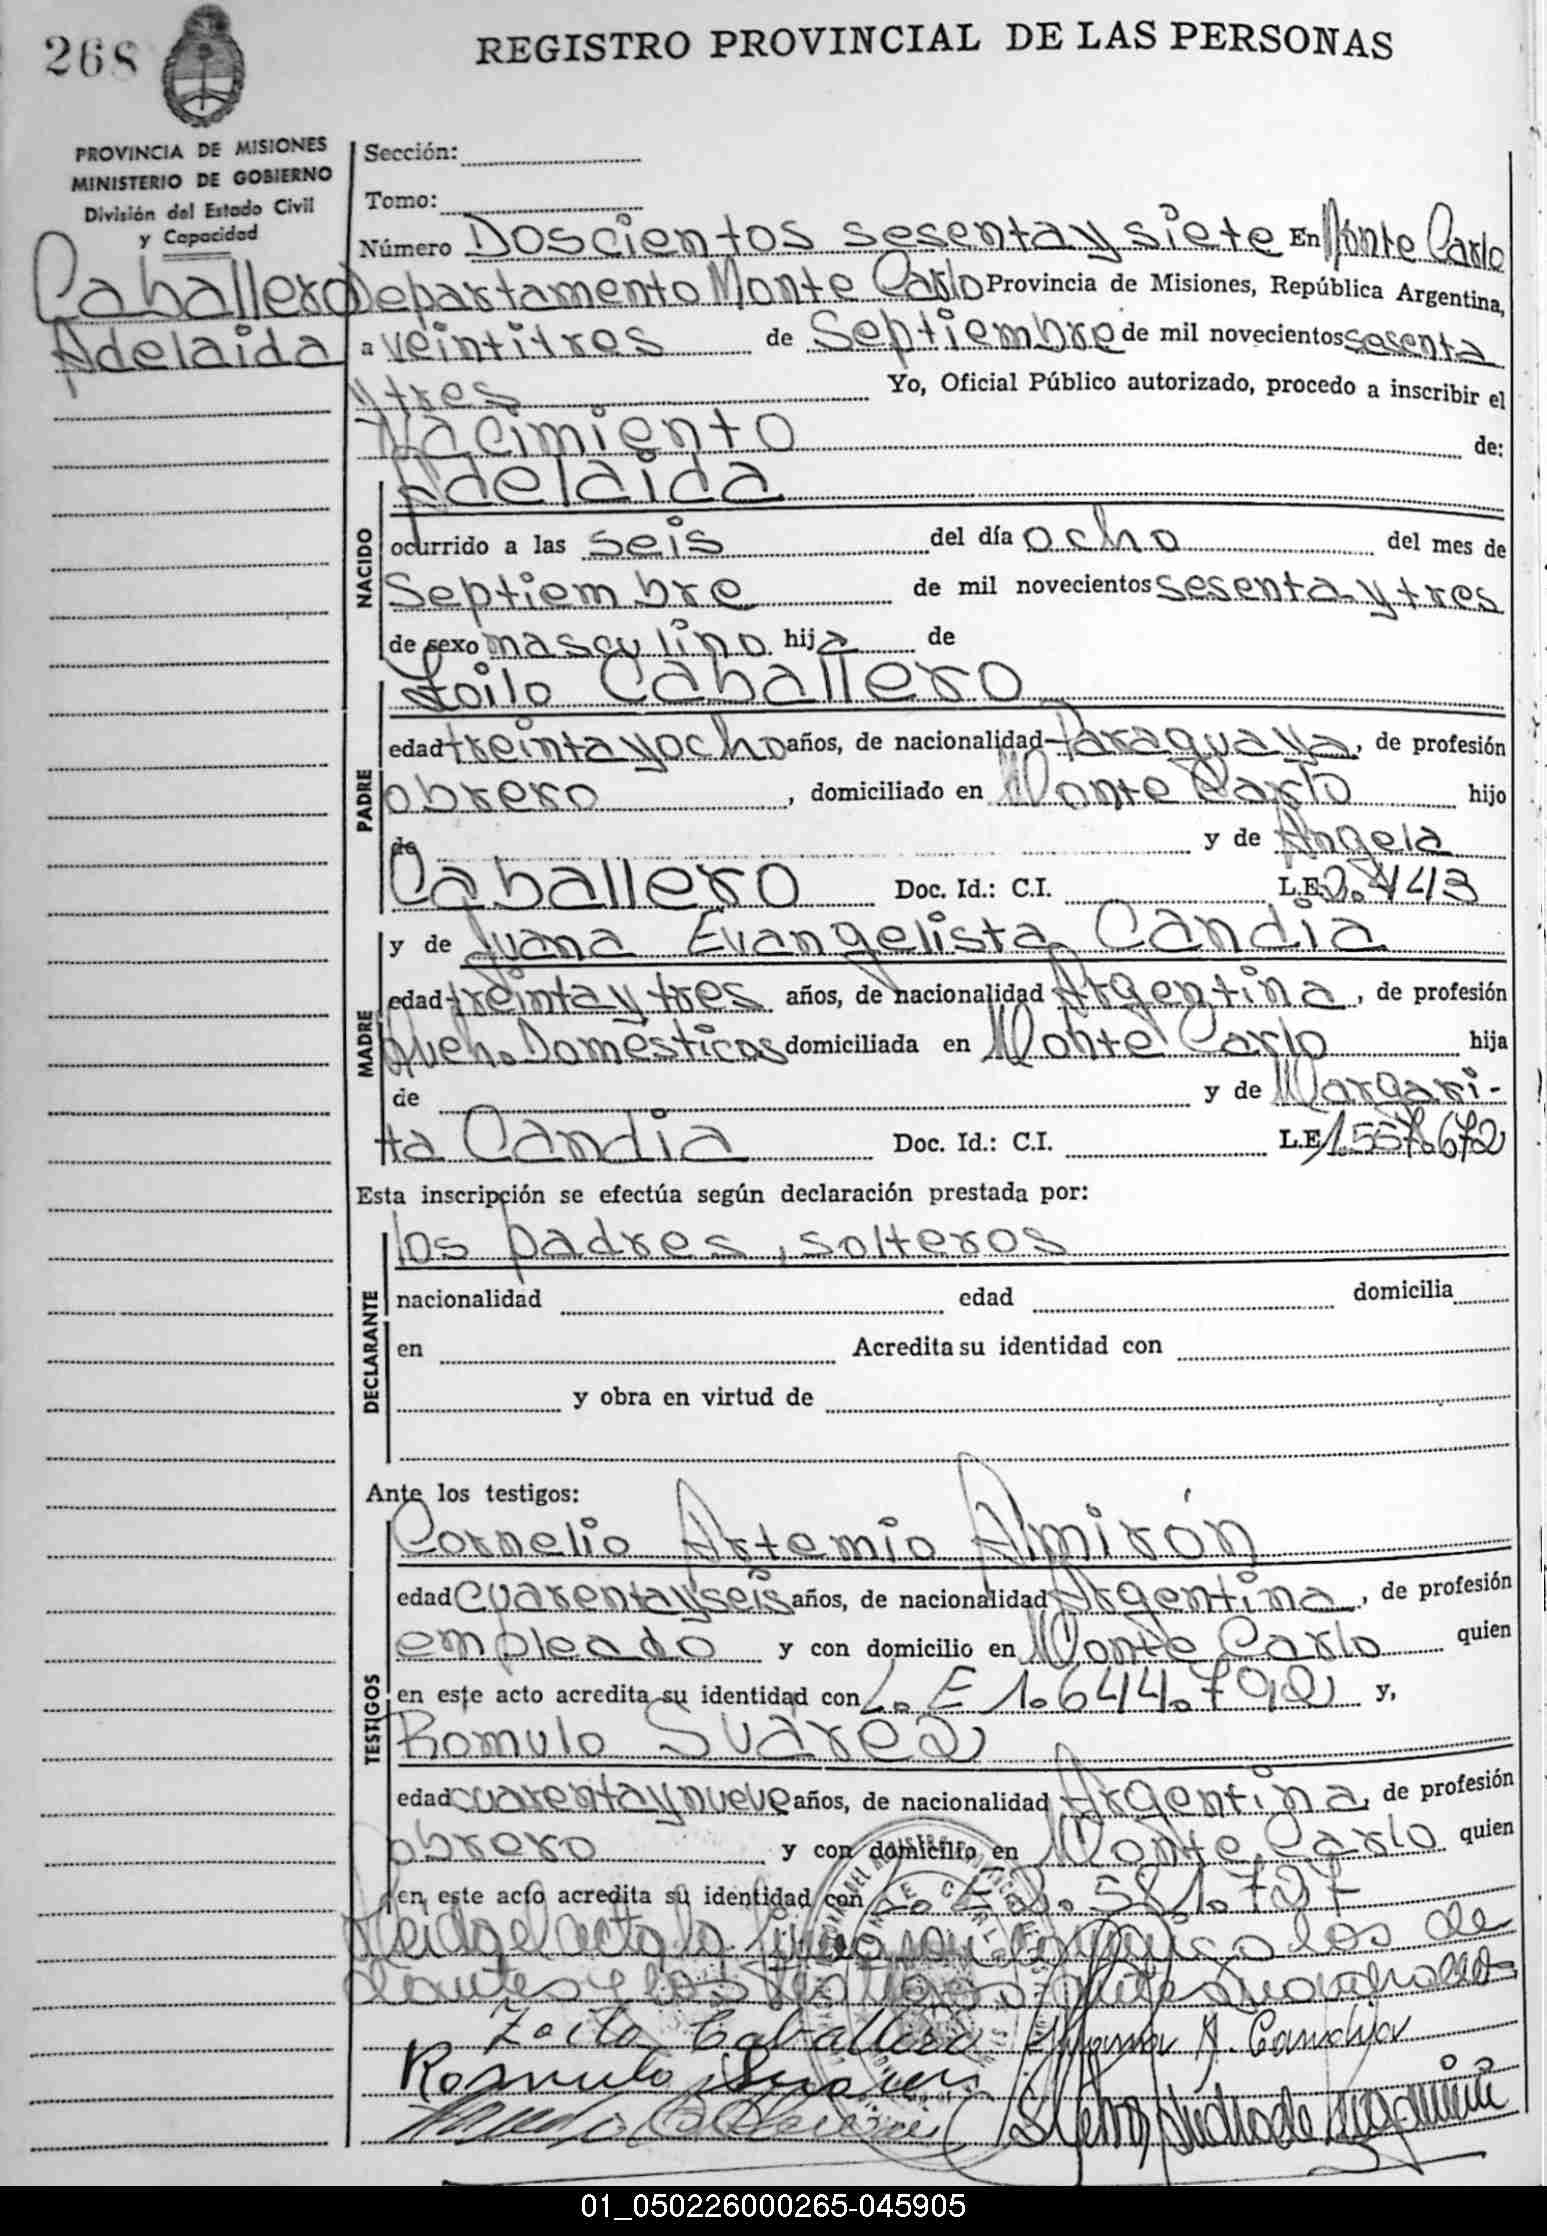 268
REGISTRO PROVINCIAL DE LAS PERSONAS
PROVINCIA DE MISIONES
MINISTERIO DE GOBIERNO
División del Estado Civil
y Capacidad
Caballero
Adelaida
Sección:
Tomo:
Número Doscientos sesenta y siete En Monte Carlo
Departamento Monte Carlo Provincia de Misiones, República Argentina,
a veintitres de Septiembre de mil novecientos sesenta
y tres Yo, Oficial Público autorizado, procedo a inscribir el
Nacimiento de:
NACIDO
Adelaida
ocurrido a las seis del día ocho del mes de
Septiembre de mil novecientos sesenta y tres
de sexo masculino hija de
PADRE
Zoilo Caballero
edad treinta y ocho años, de nacionalidad Paraguaya, de profesión
obrero, domiciliado en Monte Carlo hijo
de y de Angela
Caballero Doc. Id.: C.I. L.E.
MADRE
y de Juana Evangelista Candia
edad treinta y tres años, de nacionalidad Argentina, de profesión
Queh. Domésticos domiciliada en Monte Carlo hija
de y de Margari-
ta Candia Doc. Id.: C.I. L.E 1.557.672
Esta inscripción se efectúa según declaración prestada por:
DECLARANTE
los padres, solteros
nacionalidad edad domicilia
en Acredita su identidad con
y obra en virtud de
Ante los testigos:
TESTIGOS
Cornelio Artemio Almirón
edad cuarenta y seis años, de nacionalidad Argentina, de profesión
empleado y con domicilio en Monte Carlo quien
en este acto acredita su identidad con L. E 1.644.792 y,
Romulo Suarez
edad cuarenta y nueve años, de nacionalidad Argentina, de profesión
obrero y con domicilio en Monte Carlo quien
en este acto acredita su identidad con L. E. 581.727
Leida el acta la firmaron conmigo los de
clarantes y los testigos
Zoilo Caballero Juana A. Candia
Romulo Suarez
01_050226000265-045905